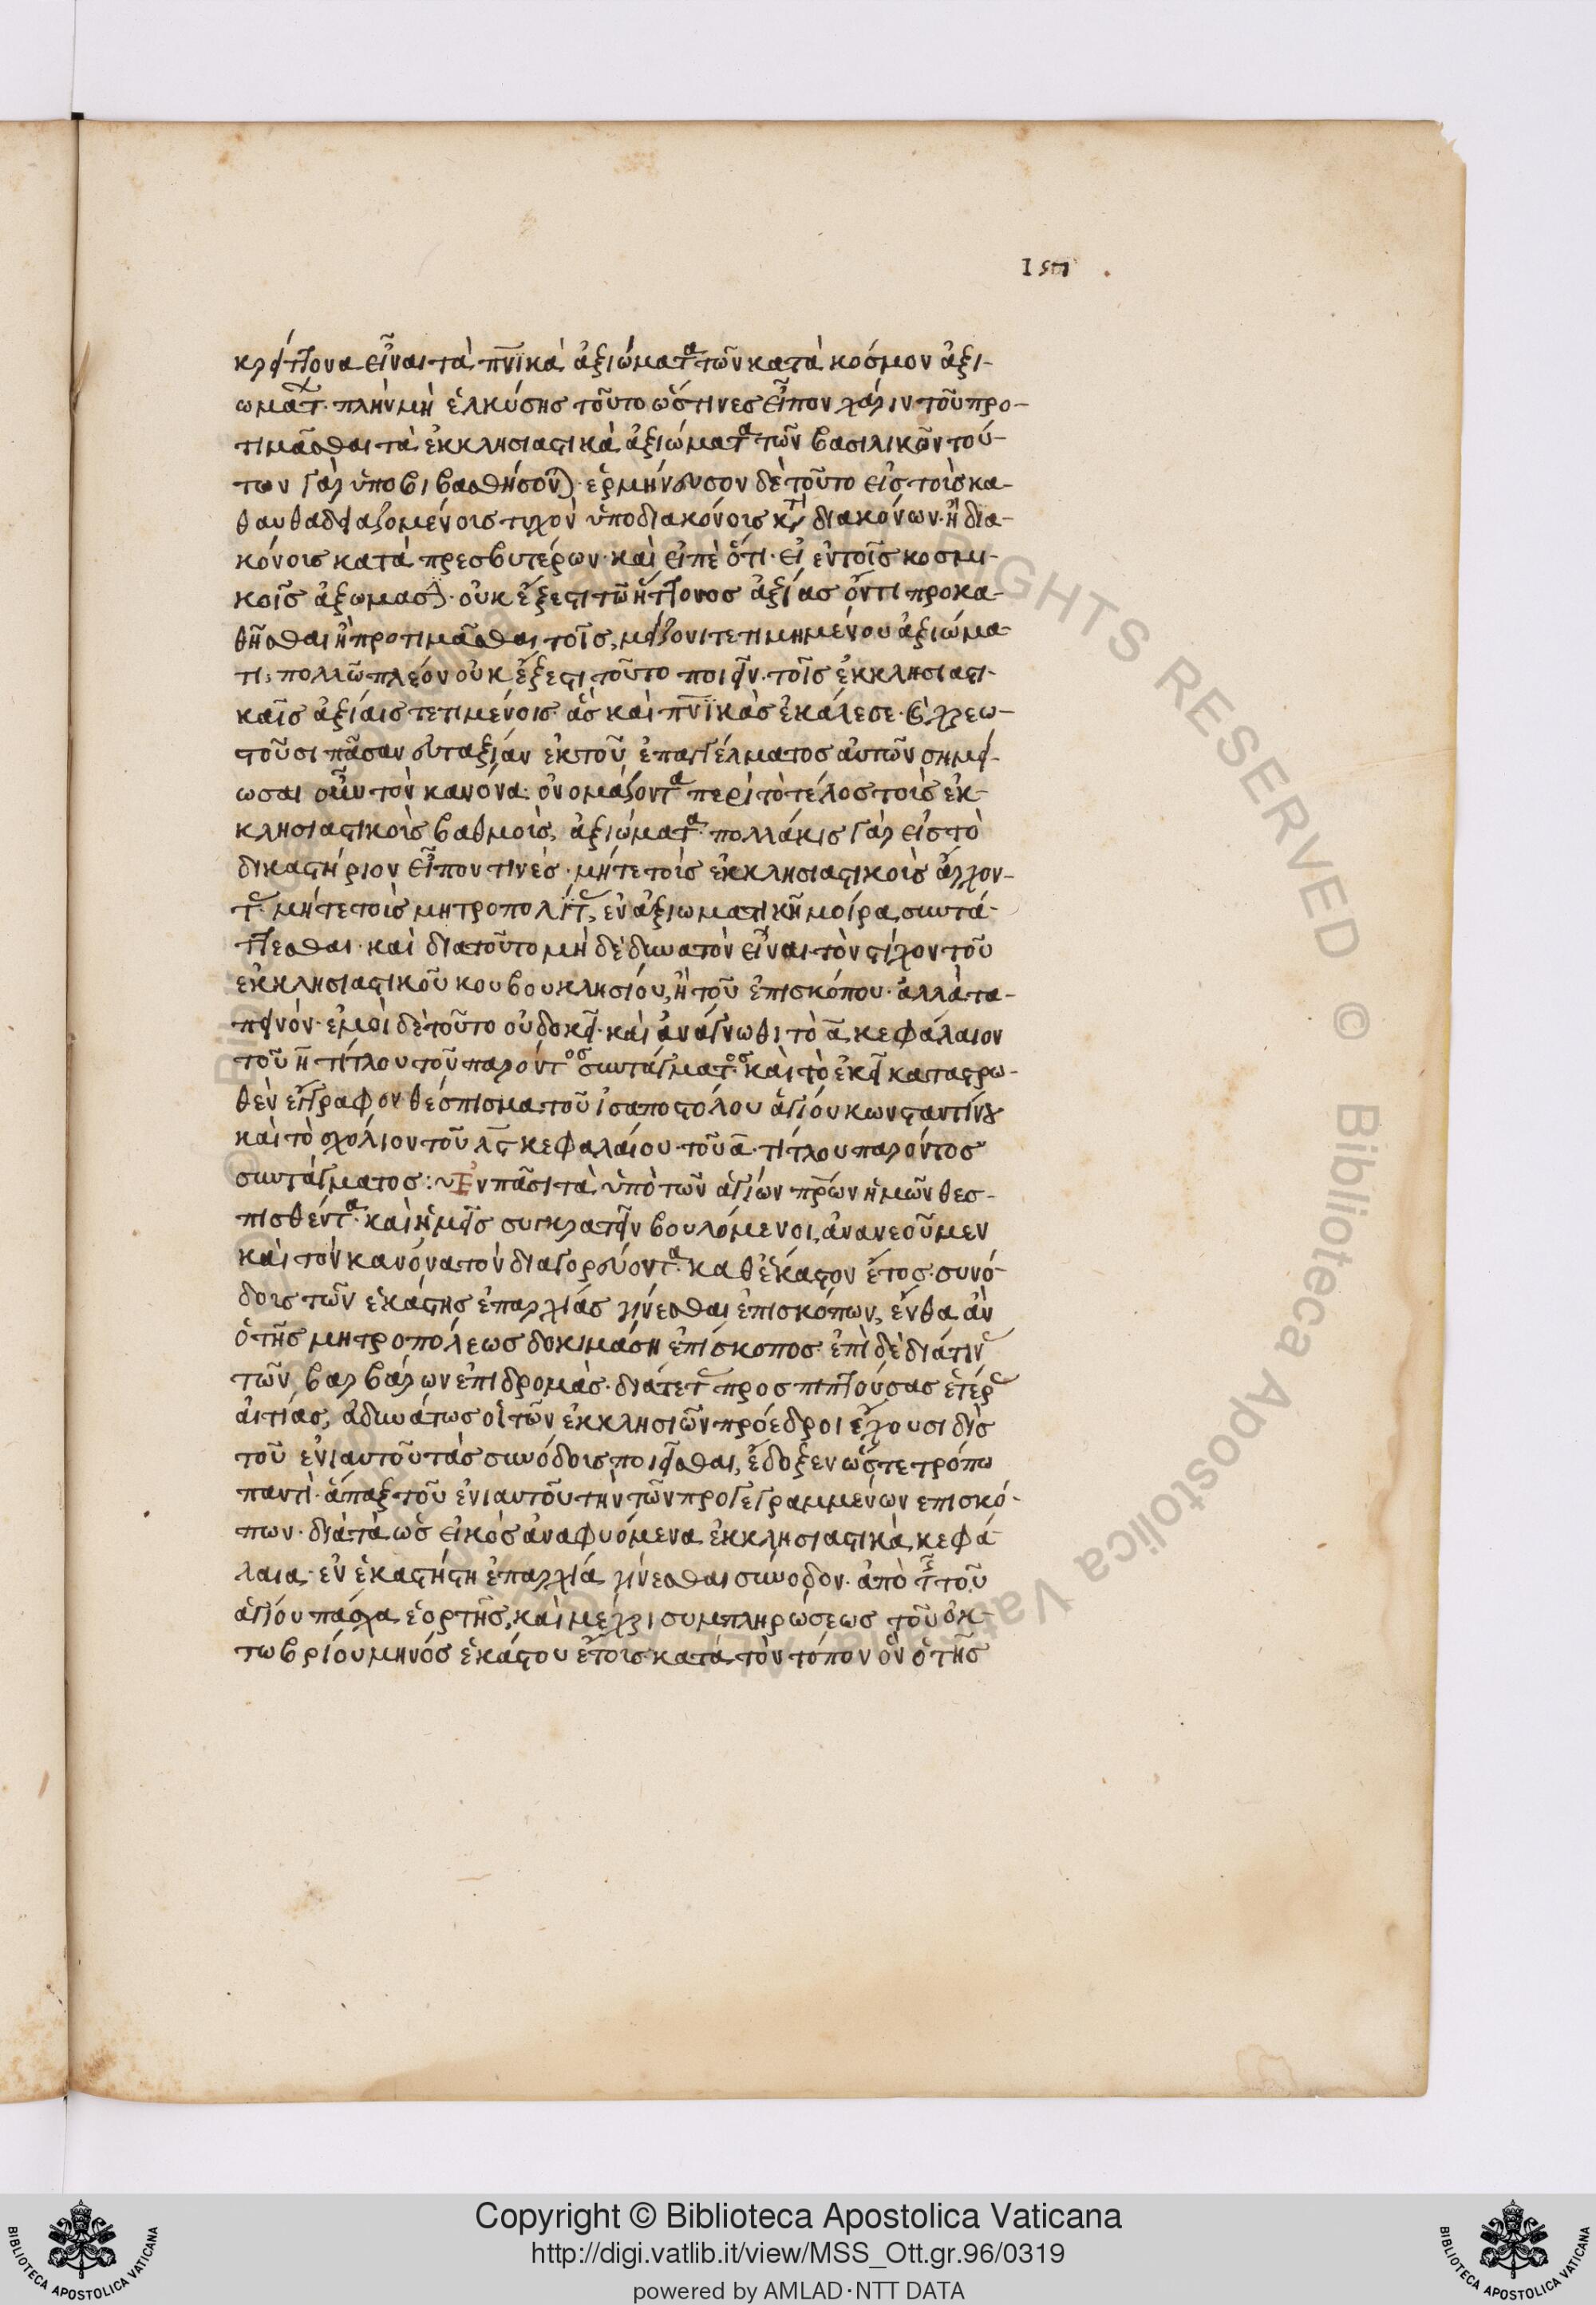 κρείττονα εἶναι τὰ πνικὰ ἀξιώματα τῶν κατὰ κόσμον ἀξι-
ωμάτων· πλὴν μὴ ἑλκύσης τοῦτο ὥς τινες εἶπον χάριν τοῦ προ-
τιμᾶσθαι τὰ ἐκκλησιαστικὰ ἀξιώματα τῶν βασιλικῶν τού-
των γὰρ ὑποβιβασθήσονται· ἑρμήνευσον δὲ τοῦτο εἰς τοὺς κα-
θαυθαδειαζομένους τυχὸν ὑποδιακόνους κατὰ διακόνων· ἢ δια-
κόνους κατὰ πρεσβυτέρων· καὶ εἰπὲ ὅτι· εἰ ἐν τοῖς κοσμι-
κοῖς ἀξιώμασιν· οὐκ ἔξεστι τῶ ἥττονος ἀξίας ὄντι προκα-
θῆσθαι ἢ προτιμᾶσθαι τοῖς μείζονι τετιμημένου ἀξιώμα-
τι· πολλῶ πλέον οὐκ ἔξεστι τοῦτο ποιεῖν· τοῖς ἐκκλησιαστι-
καῖς ἀξίαις τετιμένοις· ἃς καὶ πνϊκὰς ἐκάλεσε· χρεω-
στοῦσι πᾶσαν εὐταξίαν ἐκ τοῦ ἐπαγγέλματος αὐτῶν σημεί-
ωσαι οὖν τὸν κανόνα· ὀνομάζοντα περὶ τὸ τέλος τοὺς ἐκ-
κλησιαστικοὺς βαθμοὺς, ἀξιώματα· πολλάκις γὰρ εἰς τὸ
δικαστήριον εἶπον τινὲς· μήτε τοὺς ἐκκλησιαστικοὺς ἄρχον-
τας· μήτε τοὺς μητροπολίτας, ἐν ἀξιωματικῆ μοίρα συντά-
ττεσθαι· καὶ διατοῦτο μὴ δὲ δυνατὸν εἶναι τὸν στίχον τοῦ
ἐκκλησιαστικοῦ κουβουκλησίου, ἢ τοῦ ἐπισκόπου· ἀλλὰ τα-
πεινόν· ἐμοὶ δὲ τοῦτο οὐ δοκεῖ· καὶ ἀνάγνωθι τὸ α κεφάλαιον
τοῦ η τίτλου τοῦ παρόντος συντάγματος καὶ τὸ ἐκεῖ καταστρω-
θὲν ἔγγραφον θέσπισμα τοῦ ἰσαποστόλου ἁγίου κωνσταντίνου
καὶ τὸ σχόλιον τοῦ λϛ κεφαλαίου· τοῦ α· τίτλου παρόντος
συντάγματος : Ἐν πᾶσι τὰ ὑπὸ τῶν ἁγίων πρων ἡμῶν θεσ-
πισθέντα· καὶ ἡμεῖς συγκρατεῖν βουλόμενοι, ἀνανεοῦμεν
καὶ τὸν κανόνα τὸν διαγορεύοντα· καθ ἕκαστον ἔτος· συνό-
δους τῶν ἑκάστης ἐπαρχίας γίνεσθαι ἐπισκόπων, ἔνθα ἂν
ὁ τῆς μητροπόλεως δοκιμάση ἐπίσκοπος ἐπὶ δὲ διάτινας
τῶν βαρβάρων ἐπιδρομὰς· διάτε τὰς προσπιπτούσας ἑτέρας
αἰτίας, ἀδυνάτως οἱ τῶν ἐκκλησιῶν πρόεδροι ἔχουσι δὶς
τοῦ ἐνιαυτοῦ τὰς συνόδους ποιεῖσθαι, ἔδοξεν ὥστε τρόπω
παντὶ· ἅπαξ τοῦ ἐνιαυτοῦ τὴν τῶν προγεγραμμένων ἐπισκό-
πων· διὰ τὰ ὡς εἰκὸς ἀναφυόμενα ἐκκλησιαστικὰ κεφά-
λαια· ἐν ἑκαστήστη ἐπαρχία γίνεσθαι σύνοδον· ἀπὸ τῆς τοῦ
ἁγίου πάσχα ἑορτῆς, καὶ μέχρι συμπληρώσεως τοῦ ὀκ-
τωβρίου μηνὸς ἑκάστου ἔτους· κατὰ τὸν τόπον ὃν ὁ τῆς
Copyright © Biblioteca Apostolica Vaticana
http://digi.vatlib.it/view/MSS_Ott.gr.96/0319
powered by AMLAD·NTT DATA